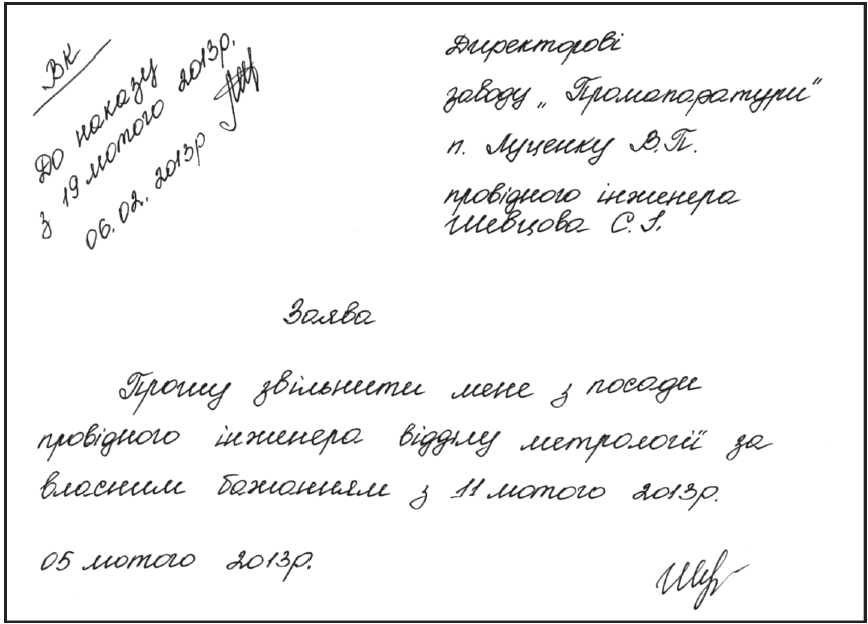 ВК
До наказу
з 19 лютого 2013р.
06.02.2013р
Директорові
заводу „Промапаратури"
п. Луценку В.П.
провідного інженера
Шевцова С.І.
Заява
Прошу звільнити мене з посади
провідного інженера відділу метрології за
власним бажанням з 11 лютого 2013р.
05 лютого 2013р.